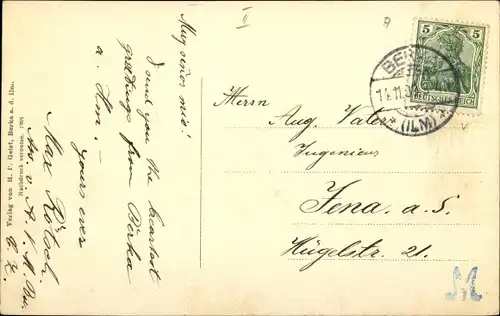 II
My vieux mie!
I send you the heartest
greetings from Berka
a. Ilm. –
yours ever
Max
Verlag von H. P. Geist, Berka a. d. Ilm.
Nachdruck verboten. 1905
5 5
DEUTSCHES REICH
BERKA
(ILM)
Herrn
Aug. Vater,
Ingenieur
Jena. a. S.
Hügelstr. 21.